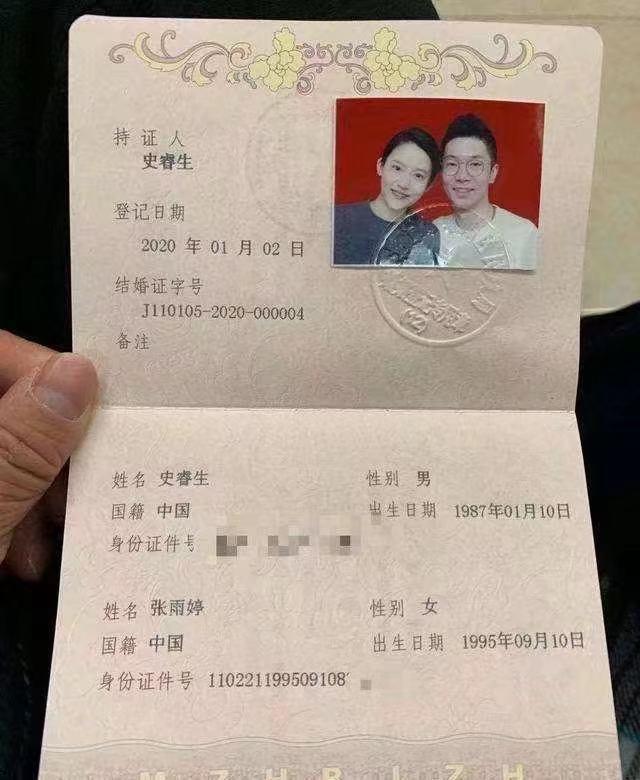 持证人
史睿生
登记日期
2020 年 01 月 02 日
结婚证字号
J110105-2020-000004
备注
姓名 史睿生 性别 男
国籍 中国 出生日期 1987年01月10日
身份证件号
姓名 张雨婷 性别 女
国籍 中国 出生日期 1995年09月10日
身份证件号 110221199509108